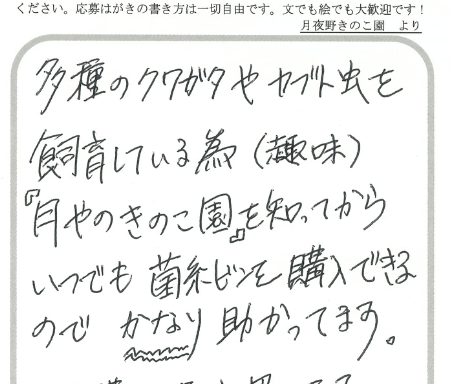 ください。応募はがきの書き方は一切自由です。文でも絵でも大歓迎です！
月夜野きのこ園　より
多種のクワガタやカブト虫を
飼育している為（趣味）
『月やのきのこ園』を知ってから
いつでも菌糸ビンを購入できる
ので かなり 助かってます。